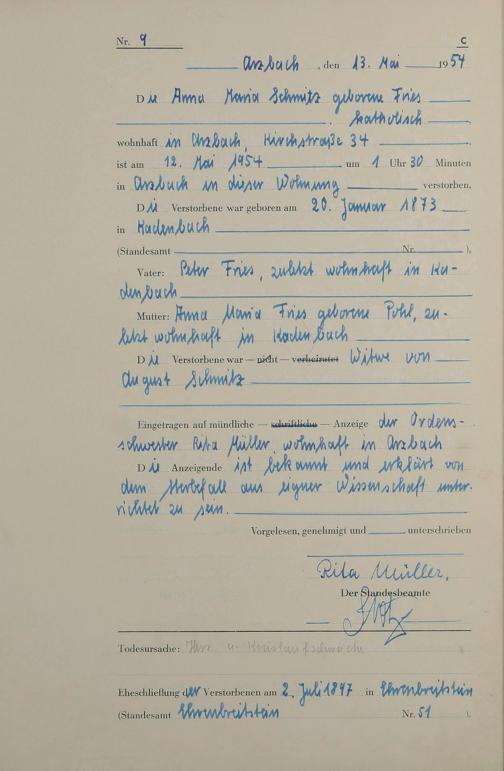 Nr. 9 C
Arzbach , den 13. Mai 1954
Die Anna Maria Schmitz geborene Fries
, katholisch
wohnhaft in Arzbach, Kirchstraße 34
ist am 12. Mai 1954 um 1 Uhr 30 Minuten
in Arzbach in dieser Wohnung verstorben.
Die Verstorbene war geboren am 20. Januar 1873
in Kadenbach
(Standesamt Nr. ).
Vater: Peter Fries, zuletzt wohnhaft in Ka-
denbach
Mutter: Anna Maria Fries geborene Pohl, zu-
letzt wohnhaft in Kadenbach
Die Verstorbene war — nicht — verheiratet Witwe von
August Schmitz
Eingetragen auf mündliche — schriftliche — Anzeige der Ordens-
schwester Rita Müller, wohnhaft in Arzbach
Die Anzeigende ist bekannt und erklärt von
dem Sterbefall aus eigner Wissenschaft unter-
richtet zu sein.
Vorgelesen, genehmigt und unterschrieben
Rita Müller.
Der Standesbeamte
Todesursache: Herz u. Kreislaufschwäche
Eheschließung der Verstorbenen am 2. Juli 1897 in Ehrenbreitstein
(Standesamt Ehrenbreitstein Nr. 51 ).